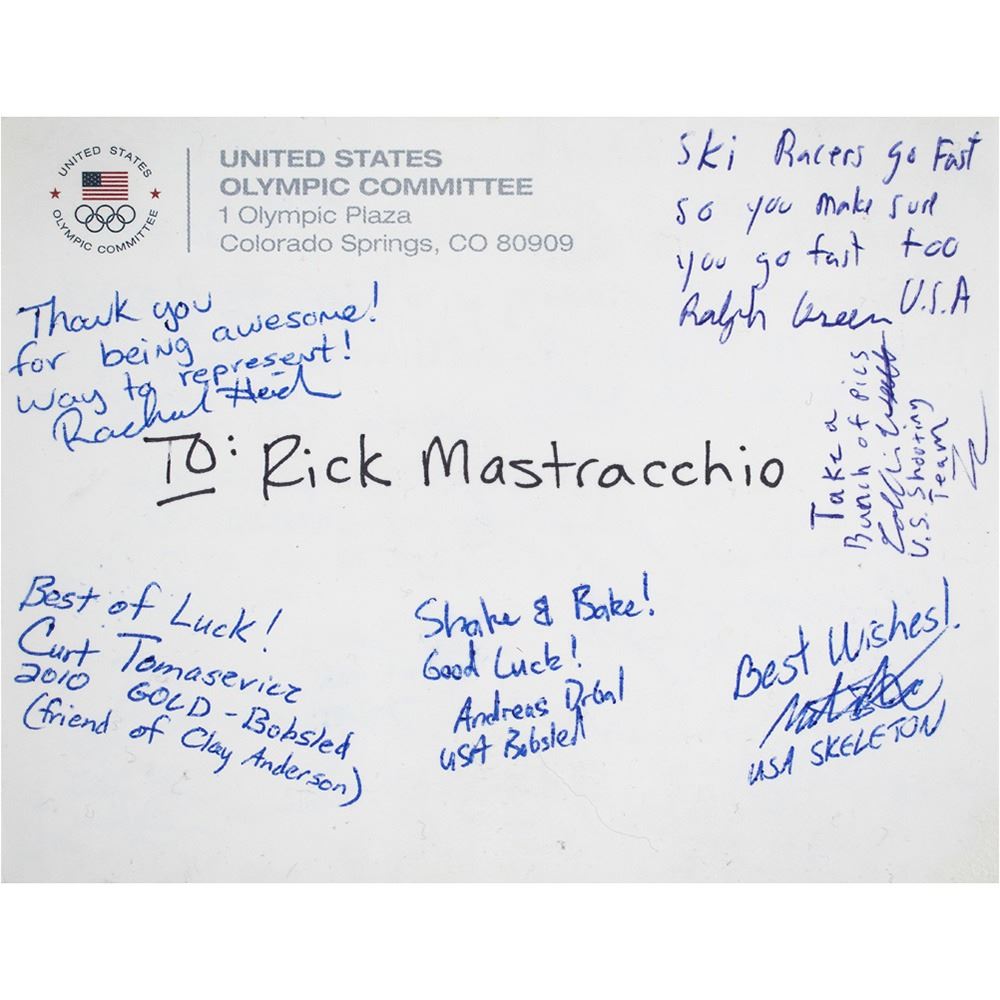 UNITED STATES
OLYMPIC COMMITTEE
UNITED STATES
OLYMPIC COMMITTEE
1 Olympic Plaza
Colorado Springs, CO 80909
Ski Racers go Fast
so you make sure
you go fast too
Ralph Green U.S.A
Thank you
for being awesome!
way to represent!
Rachael
Take a
Bunch of pics
U.S. Shooting
Team
TO: Rick Mastracchio
Best of Luck!
Curt Tomasevicz
2010 GOLD - Bobsled
(friend of Clay Anderson)
Shake & Bake!
Good Luck!
Andreas Drbal
USA Bobsled
Best Wishes!
USA SKELETON